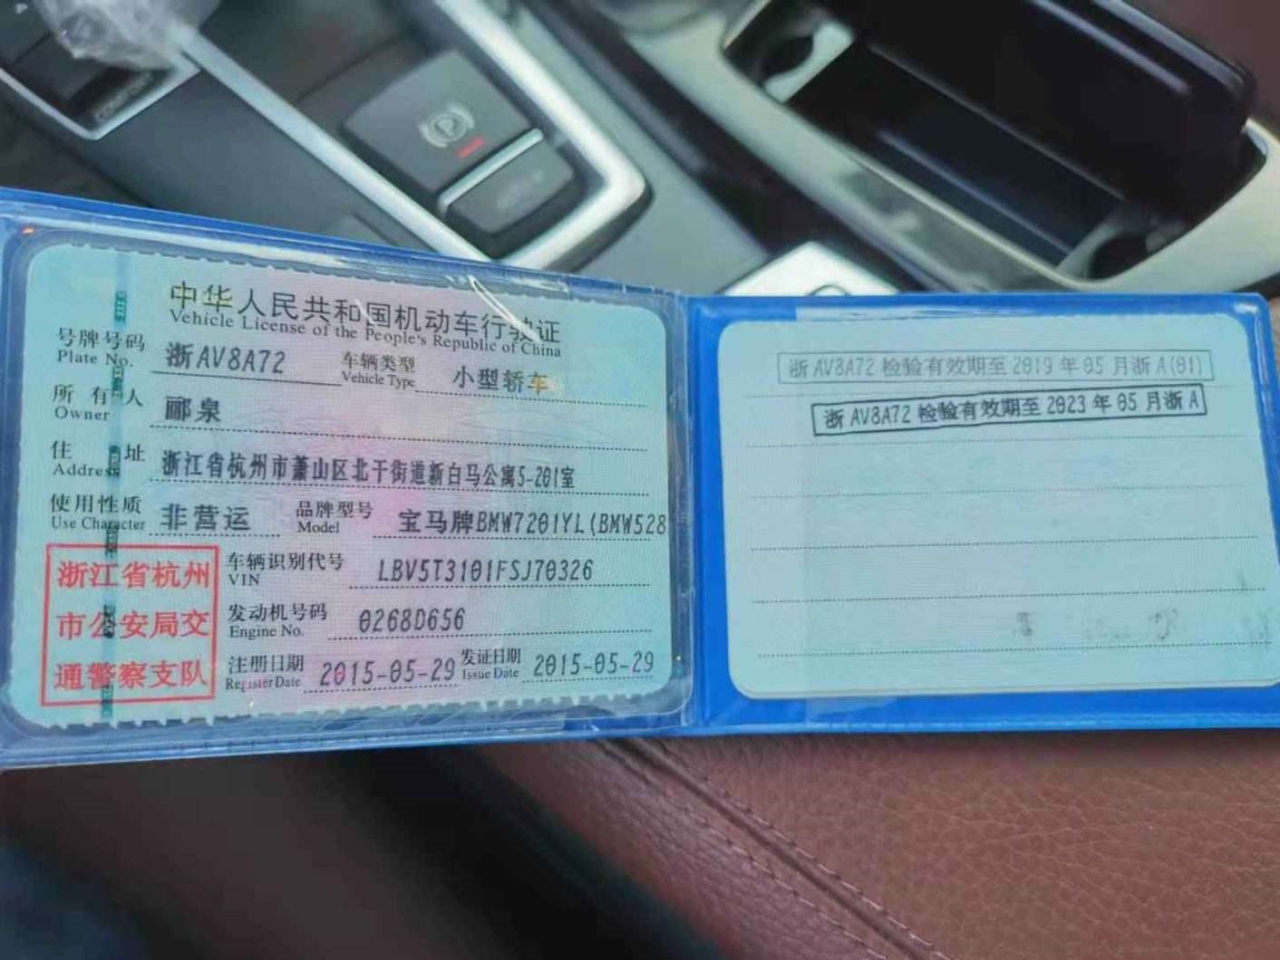 中华人民共和国机动车行驶证
Vehicle License of the People's Republic of China
号牌号码 浙AV8A72 车辆类型 小型轿车
Plate No. Vehicle Type
所有人 郦泉
Owner
住址 浙江省杭州市萧山区北干街道新白马公寓5-201室
Address
使用性质 非营运 品牌型号 宝马牌BMW7201YL(BMW528
Use Character Model
浙江省杭州
市公安局交
通警察支队
车辆识别代号 LBV5T3101FSJ70326
VIN
发动机号码 0268D656
Engine No.
注册日期 2015-05-29 发证日期 2015-05-29
Register Date Issue Date
浙AV8A72 检验有效期至 2019 年 05 月浙A(01)
浙AV8A72 检验有效期至 2023 年 05 月浙A
P